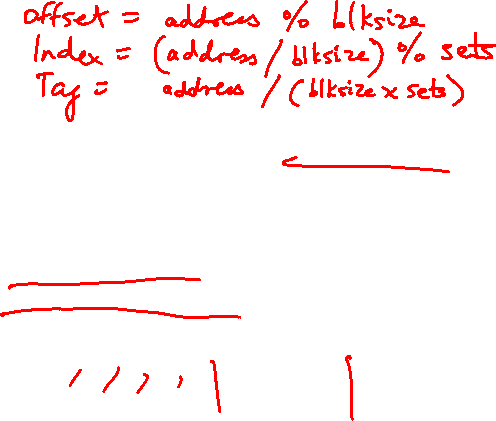 offset = address % blksize
Index = (address / blksize) % sets
Tag = address / (blksize x sets)